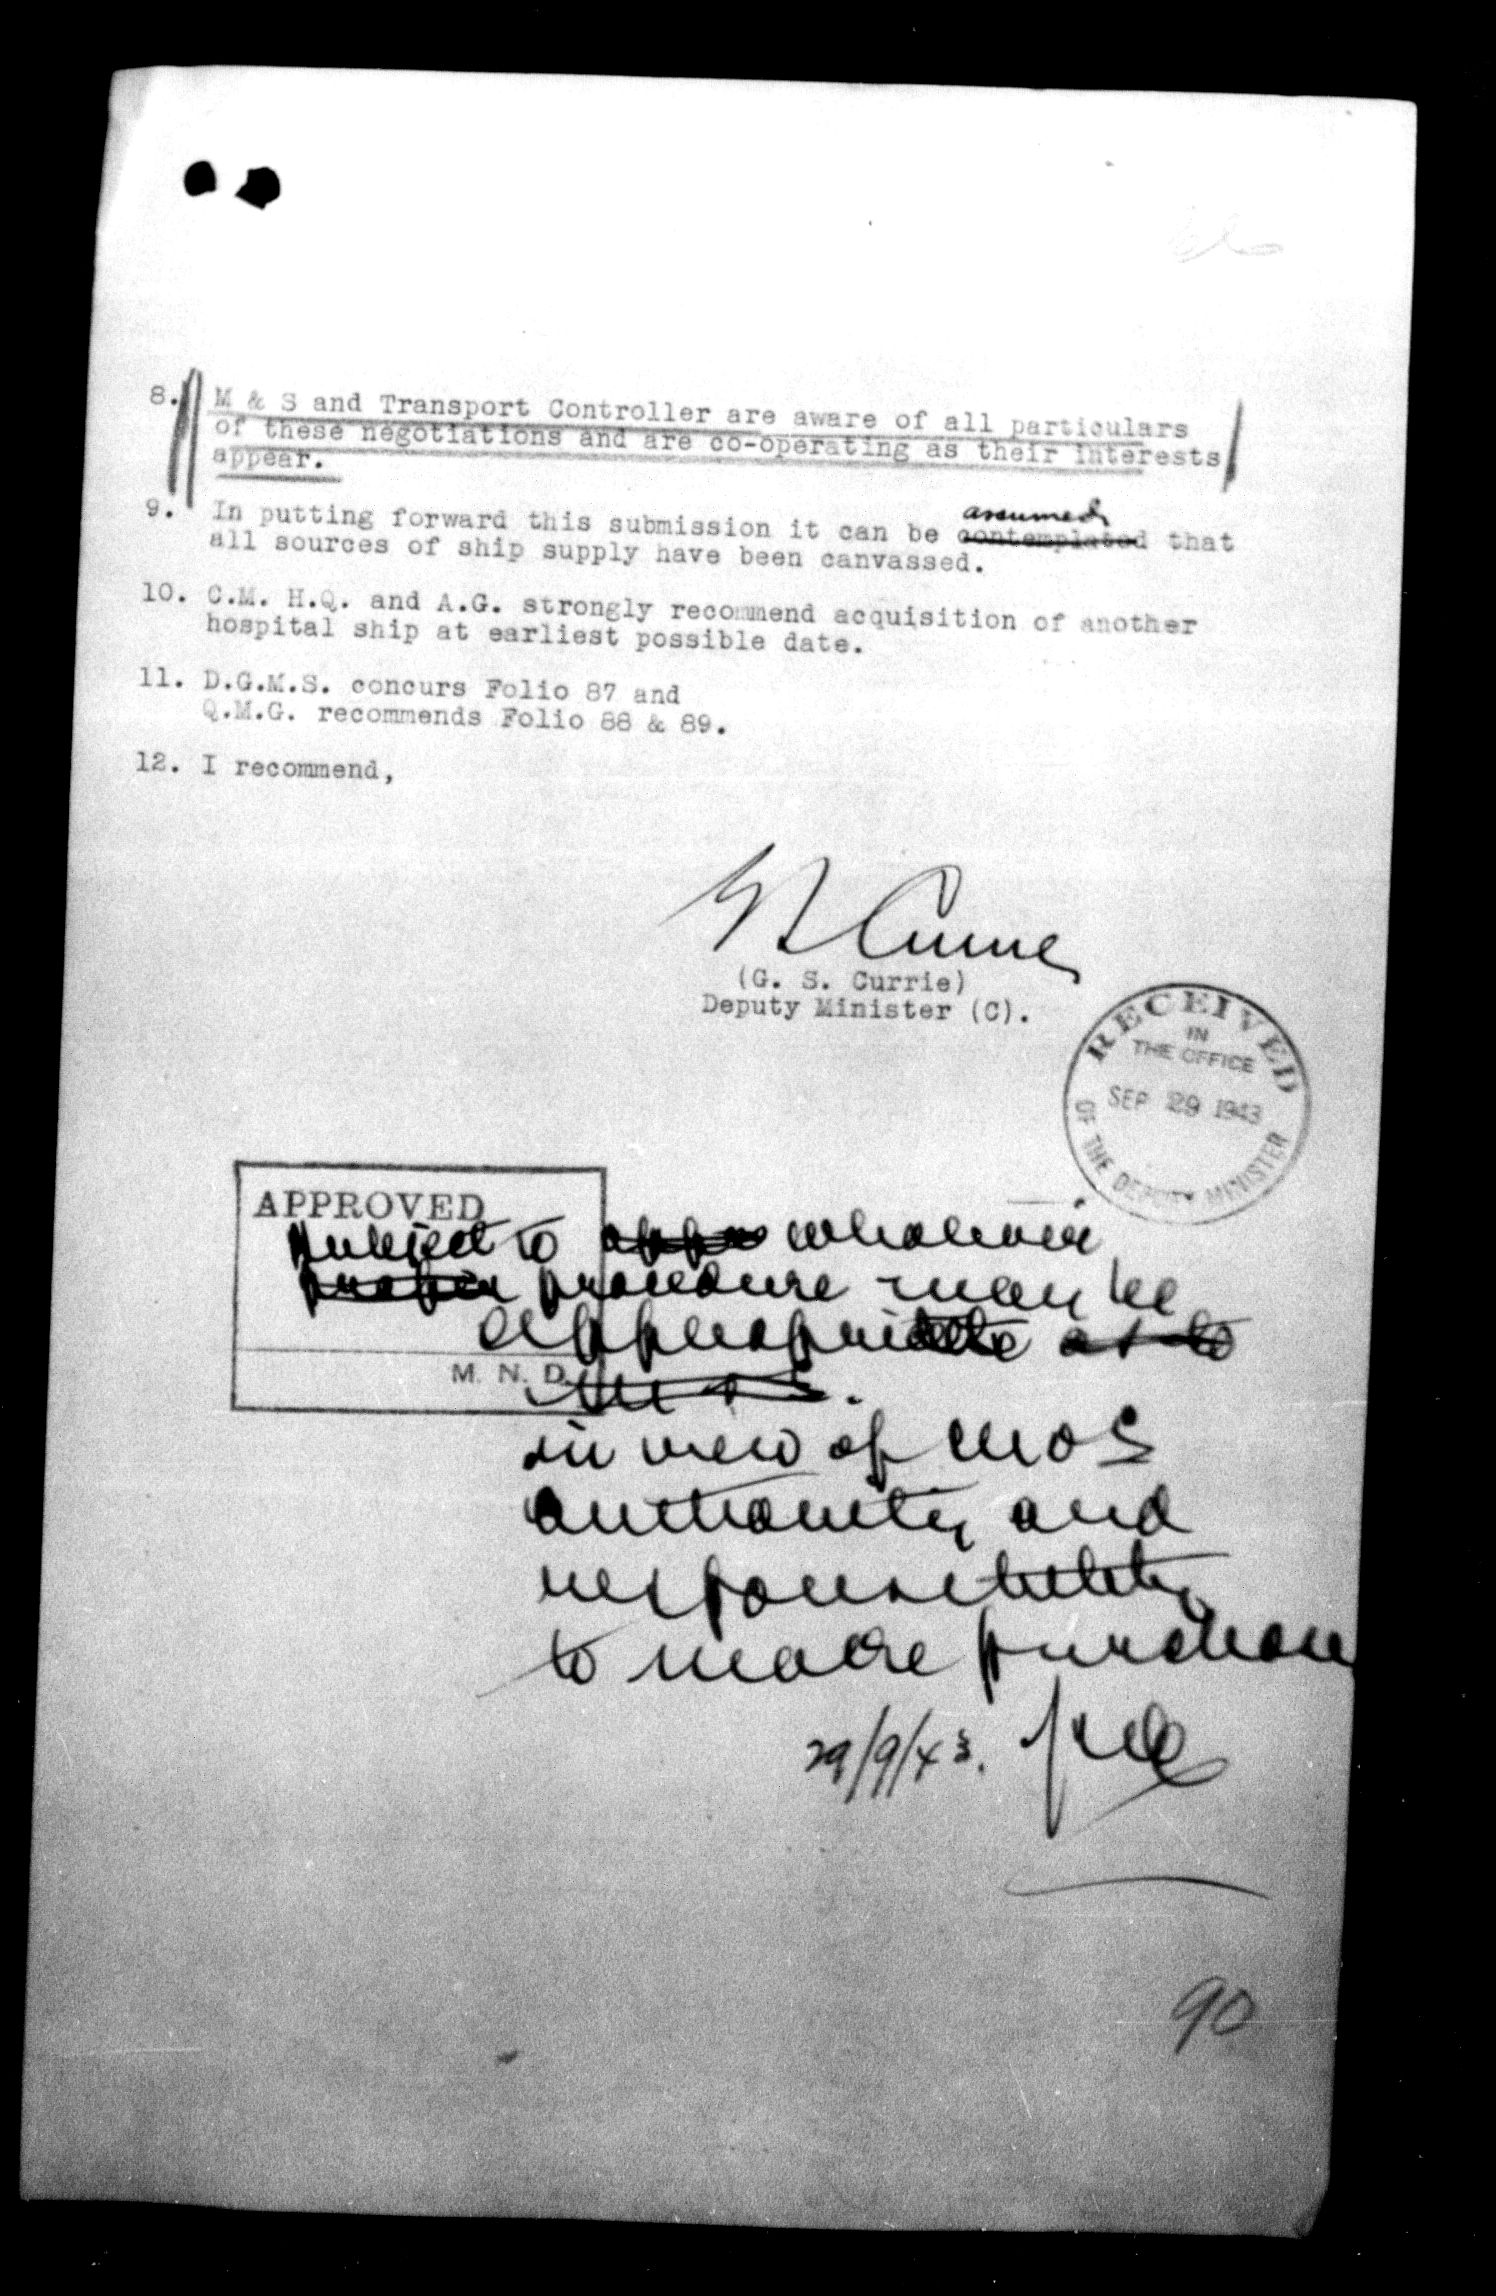 8. M & S and Transport Controller are aware of all particulars
of these negotiations and are co-operating as their interests
appear.
9. In putting forward this submission it can be contemplated assumed that
all sources of ship supply have been canvassed.
10. C.M. H.Q. and A.G. strongly recommend acquisition of another
hospital ship at earliest possible date.
11. D.G.M.S. concurs Folio 87 and
Q.M.G. recommends Folio 88 & 89.
12. I recommend,
G S Currie
(G. S. Currie)
Deputy Minister (C).
RECEIVED
IN
THE OFFICE
SEP 29 1943
OF THE DEPUTY MINISTER
APPROVED
subject to appro whatever
proper procedure may be
appropriate as to
M. N. D.
M & S.
in view of M & S
authority and
responsibility
to make purchase
29/9/43.
90